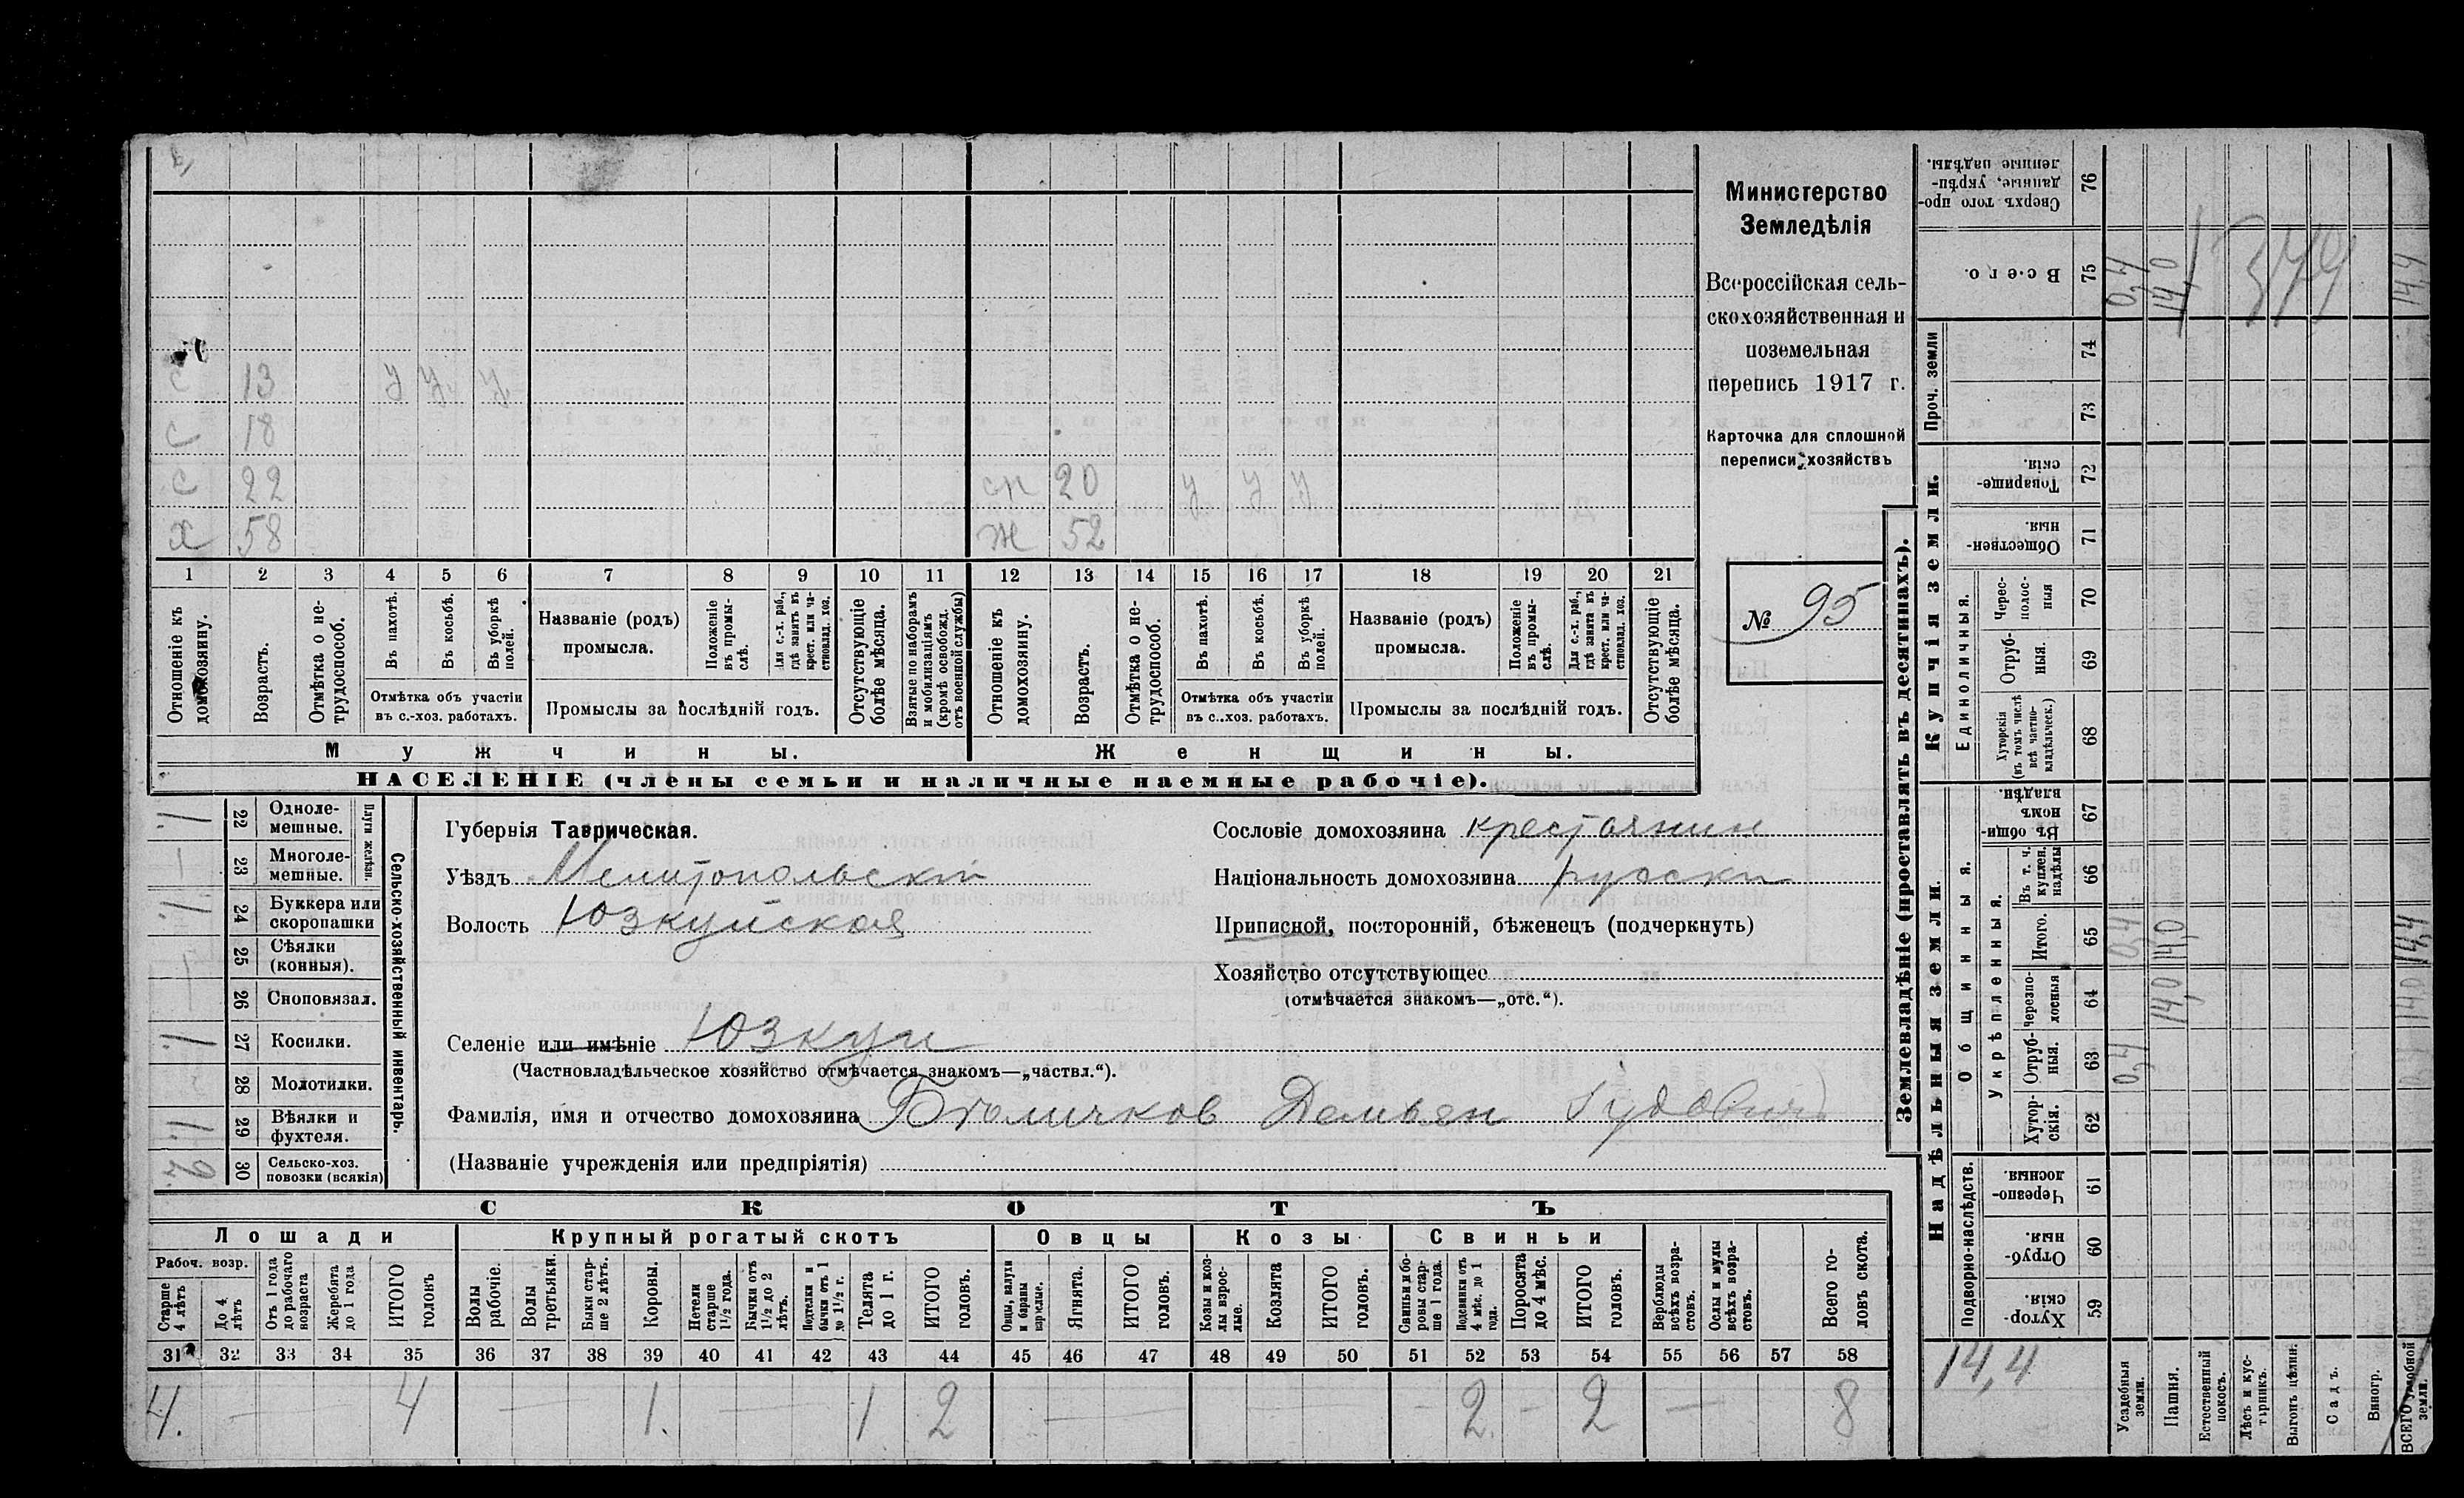 с 13 у у у
с 18
с 22 сн 20 у у у
х 58 ж 52
1 2 3 4 5 6 7 8 9 10 11 12 13 14 15 16 17 18 19 20 21
Отношеніе къ домохозяину.
Возрастъ.
Отмѣтка о не-трудоспособ.
Въ пахотѣ.
Въ косьбѣ.
Въ уборкѣ полей.
Отмѣтка объ участіи
въ с.-хоз. работахъ.
Названіе (родъ)
промысла.
Положеніе въ промы-слѣ.
Для с.-х. раб., гдѣ занятъ въ крест. или ча-стновлад. хоз.
Промыслы за послѣдній годъ.
Отсутствующіе болѣе мѣсяца.
Взятые по наборамъ и мобилизаціямъ (кромѣ освобожд. отъ военной службы)
Отношеніе къ домохозяину.
Возрастъ.
Отмѣтка о не-трудоспособ.
Въ пахотѣ.
Въ косьбѣ.
Въ уборкѣ полей.
Отмѣтка объ участіи
въ с.-хоз. работахъ.
Названіе (родъ)
промысла.
Положеніе въ промы-слѣ.
Для с.-х. раб., гдѣ занята въ крест. или ча-стновлад. хоз.
Промыслы за послѣдній годъ.
Отсутствующіе болѣе мѣсяца.
Мужчины. Женщины.
НАСЕЛЕНІЕ (члены семьи и наличные наемные рабочіе).
Министерство
Земледѣлія
Всероссійская сель-
скохозяйственная и
поземельная
перепись 1917 г.
Карточка для сплошной
переписи хозяйствъ
№ 95
Сельско-хозяйственный инвентарь.
Плуги желѣзн.
1 22 Одноле-мешные.
23 Многоле-мешные.
1 24 Буккера или скоропашки
25 Сѣялки (конныя).
26 Сноповязал.
1 27 Косилки.
28 Молотилки.
1 29 Вѣялки и фухтеля.
30 Сельско-хоз. повозки (всякія)
Губернія Таврическая.
Уѣздъ Мелитопольскій
Волость Юзкуйская
Селеніе или имѣніе Юзкуи
(Частновладѣльческое хозяйство отмѣчается знакомъ—„частвл.“).
Фамилія, имя и отчество домохозяина Демьян
(Названіе учрежденія или предпріятія)
Сословіе домохозяина крестоянин
Національность домохозяина руски
Приписной, посторонній, бѣженецъ (подчеркнуть)
Хозяйство отсутствующее
(отмѣчается знакомъ—„отс.“).
СКОТЪ
Лошади Крупный рогатый скотъ Овцы Козы Свиньи
Рабоч. возр.
Старше 4 лѣтъ
До 4 лѣтъ
Отъ 1 года до рабочаго возраста
Жеребята до 1 года
ИТОГО головъ
Волы рабочіе.
Волы третьяки.
Быки стар-ше 2 лѣтъ.
Коровы.
Нетели старше 1½ года.
Бычки отъ 1½ до 2 лѣтъ.
Подтелки и бычки отъ 1 до 1½ г.
Телята до 1 г.
ИТОГО головъ.
Овцы, валухи и бараны взрослые.
Ягнята.
ИТОГО головъ.
Козы и коз-лы взрос-лые.
Козлята
ИТОГО головъ.
Свиньи и бо-ровы стар-ше 1 года.
Подсвинки отъ 4 мѣс. до 1 года.
Поросята до 4 мѣс.
ИТОГО головъ.
Верблюды всѣхъ возра-стовъ.
Ослы и мулы всѣхъ возра-стовъ.
Всего го-ловъ скота.
31 32 33 34 35 36 37 38 39 40 41 42 43 44 45 46 47 48 49 50 51 52 53 54 55 56 57 58
4. — 4 — 1. — 1 2 — — - 2. - 2 — 8
Землевладѣніе (проставлять въ десятинахъ).
Надѣльныя земли.
Купчія земли.
Проч. земли
Подворно-наслѣдств.
Общинныя.
Укрѣпленныя.
Единоличныя.
Хутор-скія. 59
Отруб-ныя. 60
Черезпо-лосныя 61
Хутор-скія. 62
Отруб-ныя. 63
Черезпо-лосныя 64
Итого. 65
Въ т. ч. куплен. надѣлы 66
Въ общи-номъ владѣн. 67
Хуторскія (въ томъ числѣ всѣ частно-владѣльческ.) 68
Отруб-ныя. 69
Черес-полос-ныя 70
Обществен-ныя. 71
Товарище-скія. 72
73
74
Всего. 75
Сверхъ того про-данные, укрѣп-ленные надѣлы. 76
14,4
Усадебныя земли. 0,4 0,4 0,4
Пашня. 14,0 14,0 14,0
Естественный покосъ.
Лѣсъ и кус-тарникъ.
Выгонъ цѣлин.
Садъ.
Виногр.
ВСЕГО удобной земли. 14,0 14,4 14,4